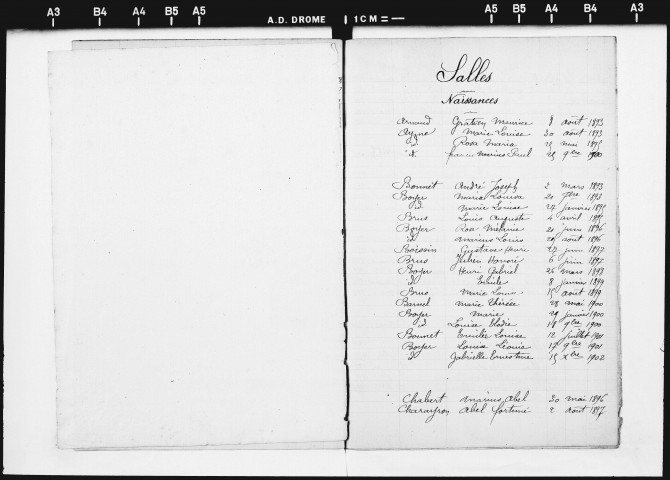 A3 B4 A4 B5 A5 A.D. DROME 1 CM = A5 B5 A4 B4 A3
Salles
Naissances
Arnaud Maurice 8 août 1893
Marie Louise 30 août 1893
d. Rosa Maria mai
d. Paul 9bre 1900
Bonnet André Joseph 2 mars 1893
Boyer Maria Louisa 1893
d Marie Louise 27 janvier
Brus Louis Auguste 4 avril
Boyer Rose Mélanie 21 juin 1896
d Marius Louis août 1896
Boissin Gustave Henri 27 juin 1897
Brus Julien Honoré 6 juin 1897
Boyer Henri Gabriel 26 mars 1898
d Emile 8 janvier 1899
Brus Marie Louise 15 août 1899
Marie Thérèse 28 mai 1900
Boyer Marie 29 janvier 1900
d Louise Elodie 18 9bre 1900
Bonnet Emilie Louise 12 juillet 1901
Boyer Louise Léonie 17 9bre 1901
d Gabrielle Ernestine 15 Xbre 1902
Chabert Marius Abel 30 mai 1896
Abel fortuné 2 août 1897